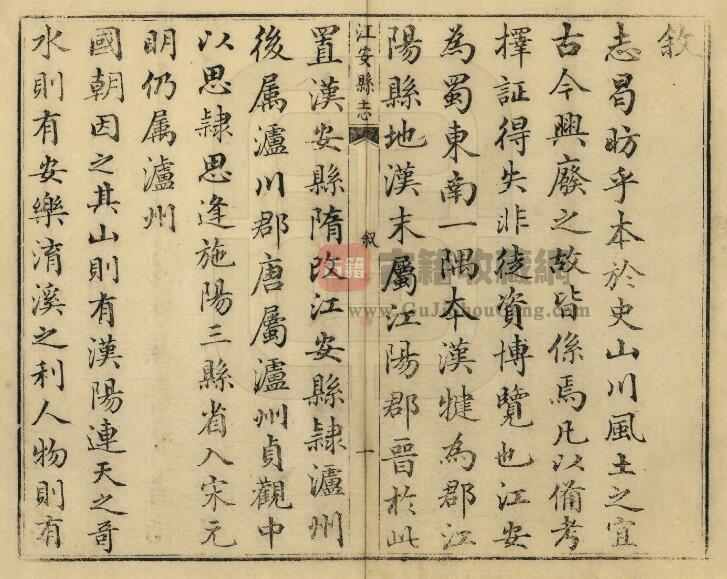 敘
志曷昉乎本於史山川風土之宜
古今興廢之故皆係焉凡以俻考
擇証得失非徒資博覽也江安
為蜀東南一隅本漢犍為郡江
陽縣地漢末屬江陽郡晉於此
江安縣志
敘
一
置漢安縣隋改江安縣隷瀘州
後属瀘川郡唐屬瀘州貞觀中
以思隷思逢施陽三縣省入宋元
明仍属瀘州
國朝因之其山則有漢陽連天之奇
水則有安樂淯溪之利人物則有
古籍
古籍收藏網
www.GuJiShouCang.com